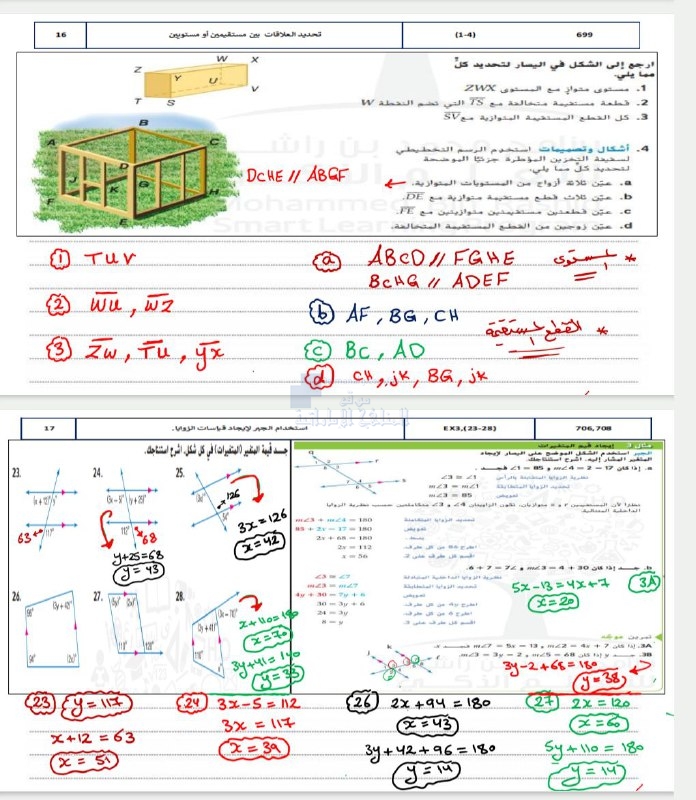 16
تحديد العلاقات بين مستقيمين أو مستويين
(1-4)
699
ارجع إلى الشكل في اليسار لتحديد كلٍّ
مما يلي.
1. مستوى متواز مع المستوى ZWX
2. قطعة مستقيمة متخالفة مع TS التي تضم النقطة W
3. كل القطع المستقيمة المتوازية مع SV
W
X
Z
Y
U
V
T
S
4. أشكال وتصميمات استخدم الرسم التخطيطي
لسقيفة التخزين المؤطرة جزئيًا الموضحة
لتحديد كلٍّ مما يلي.
a. عيّن ثلاثة أزواج من المستويات المتوازية.
b. عيّن ثلاث قطع مستقيمة متوازية مع DE
c. عيّن قطعتين مستقيمتين متوازيتين مع FE
d. عيّن زوجين من القطع المستقيمة المتخالفة.
B
A
C
D
J
K
G
H
F
E
DCHE // ABGF
① TUV
ⓐ ABCD // FGHE
* المستوى
BCHG // ADEF
② WU , WZ
ⓑ AF , BG , CH
* القطع المستقيمة
③ ZW , TU , YX
ⓒ BC , AD
ⓓ CH , JK , BG , JK
موقع
المناهج الإماراتية
17
استخدام الجبر لإيجاد قياسات الزوايا.
EX3,(23-28)
706,708
جد قيمة المتغير (المتغيرات) في كل شكل. اشرح استنتاجك.
مثال 3 إيجاد قيم المتغيرات
الجبر استخدم الشكل الموضح على اليسار لإيجاد
المتغير المشار إليه. اشرح استنتاجك.
∠3 ≅ ∠1
m∠3 = m∠1
m∠3 = 85
m∠3 + m∠4 = 180
85 + 2x − 17 = 180
2x + 68 = 180
2x = 112
x = 56
∠3 ≅ ∠7
m∠3 = m∠7
4y + 30 = 7y + 6
30 = 3y + 6
24 = 3y
8 = y
23.
24.
25.
63
112°
68
y+25=68
y = 43
126
3x = 126
x = 42
26.
27.
28.
x+110=180
x = 70
3y+41=140
y = 33
5x-13=4x+7
3A
x = 20
3y-2+68=180
y = 38
23 y = 117
x+12 = 63
x = 51
24 3x-5 = 112
3x = 117
x = 39
26 2x+94 = 180
x = 43
3y+42+96 = 180
y = 14
27 2x = 120
x = 60
5y+110 = 180
y = 14